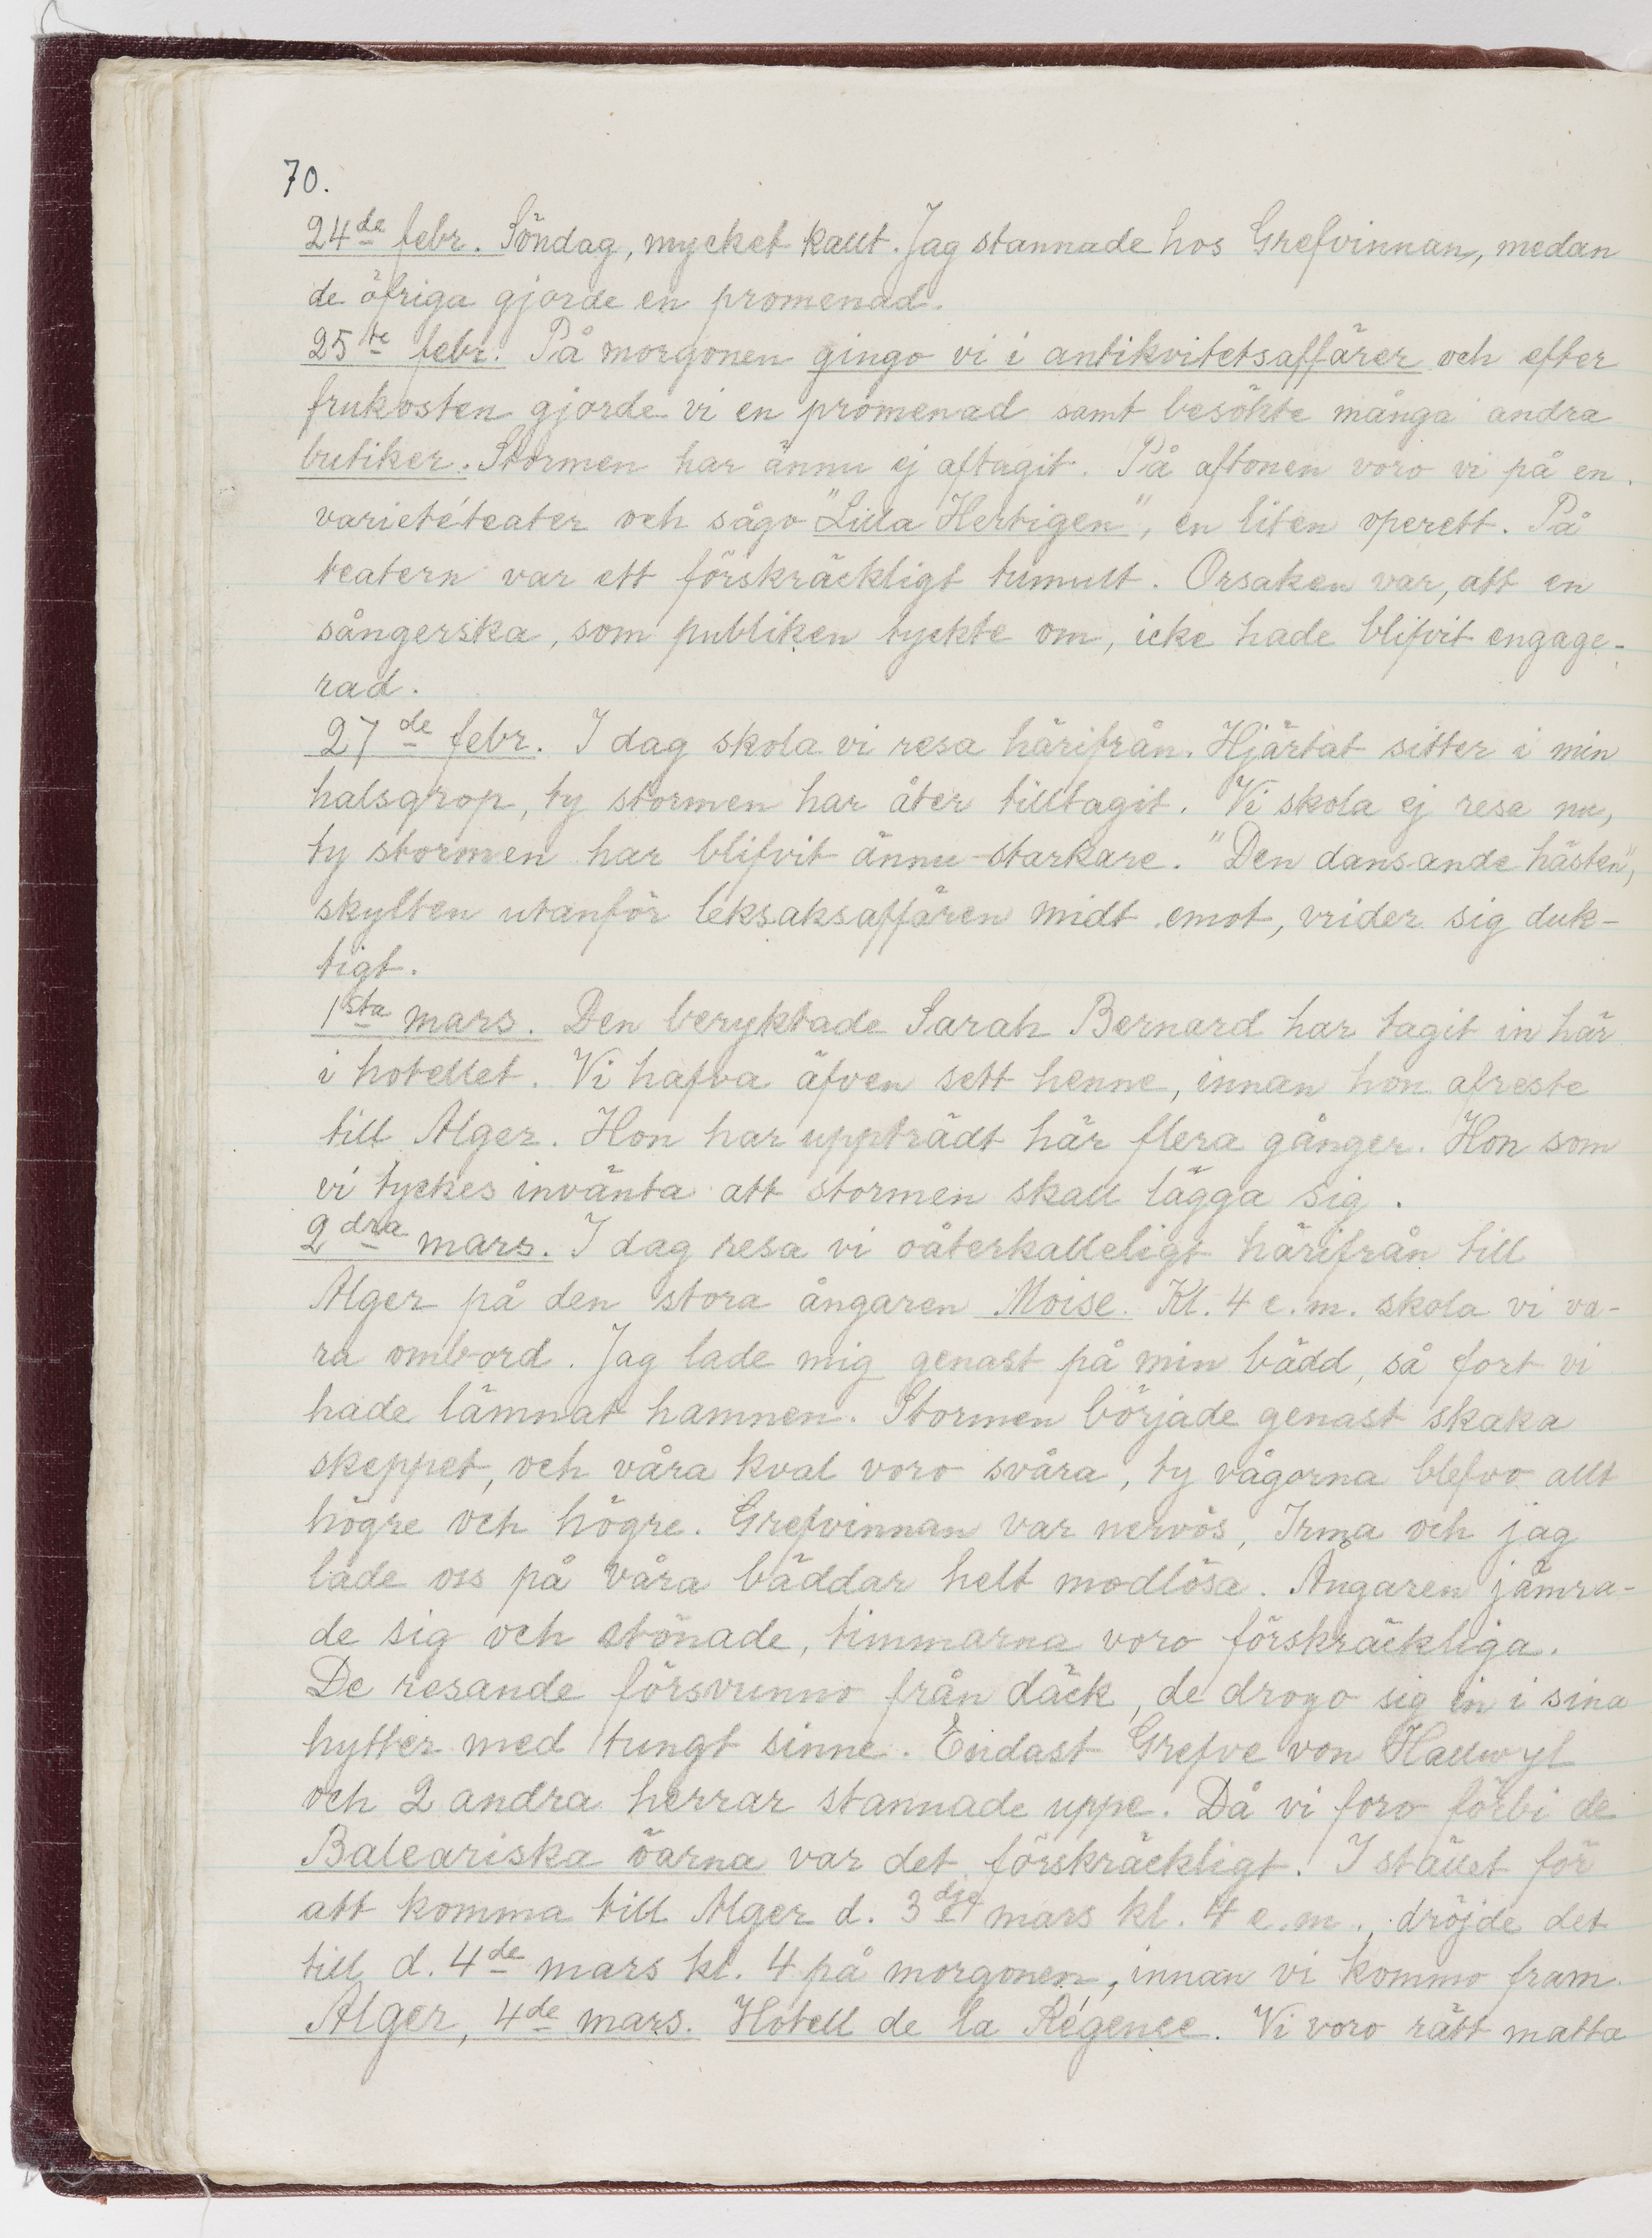 70.
24de febr. Söndag, mycket kallt. Jag stannade hos Grefvinnan, medan
de öfriga gjorde en promenad.
25te febr. På morgonen gingo vi i antikvitetsaffärer och efter
frukosten gjorde vi en promenad samt besökte många andra
butiker. Stormen har ännu ej aftagit. På aftonen voro vi på en
varietéteater och sågo "Lilla Hertigen", en liten operett. På
teatern var ett förskräckligt tumult. Orsaken var, att en
sångerska, som publiken tyckte om, icke hade blifvit engage-
rad.
27de febr. I dag skola vi resa härifrån. Hjärtat sitter i min
halsgrop, ty stormen har åter tilltagit. Vi skola ej resa nu,
ty stormen har blifvit ännu starkare. "Den dansande hästen",
skylten utanför leksaksaffären midt emot, vrider sig duk-
tigt.
1sta mars. Den beryktade Sarah Bernard har tagit in här
i hotellet. Vi hafva äfven sett henne, innan hon afreste
till Alger. Hon har uppträdt här flera gånger. Hon som
vi tyckes invänta att stormen skall lägga sig.
2dra mars. I dag resa vi oåterkalleligt härifrån till
Alger på den stora ångaren Moise. Kl. 4 e.m. skola vi va-
ra ombord. Jag lade mig genast på min bädd, så fort vi
hade lämnat hamnen. Stormen började genast skaka
skeppet, och våra kval voro svåra, ty vågorna blefvo allt
högre och högre. Grefvinnan var nervös, Irma och jag
lade oss på våra bäddar helt modlösa. Ångaren jämra-
de sig och stönade, timmarna voro förskräckliga.
De resande försvunno från däck, de drogo sig in i sina
hytter med tungt sinne. Endast Grefve von Hallwyl
och 2 andra herrar stannade uppe. Då vi foro förbi de
Baleariska öarna var det förskräckligt. I stället för
att komma till Alger d. 3dje mars kl. 4 e.m., dröjde det
till d. 4de mars kl. 4 på morgonen, innan vi kommo fram.
Alger, 4de mars. Hotell de la Régence. Vi voro rätt matta